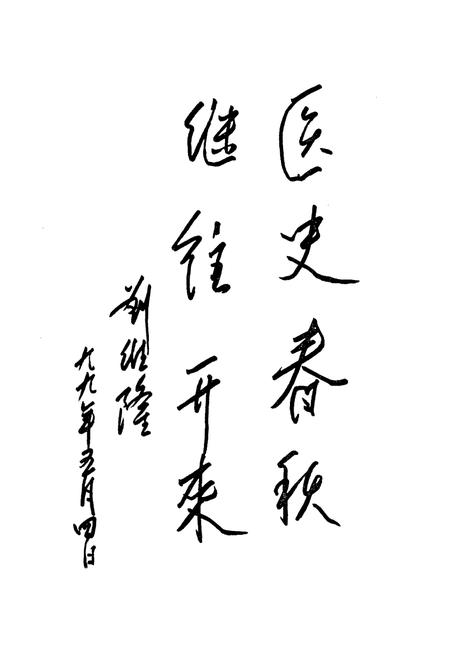 医史春秋
继往开来
刘维隆
九九年五月四日